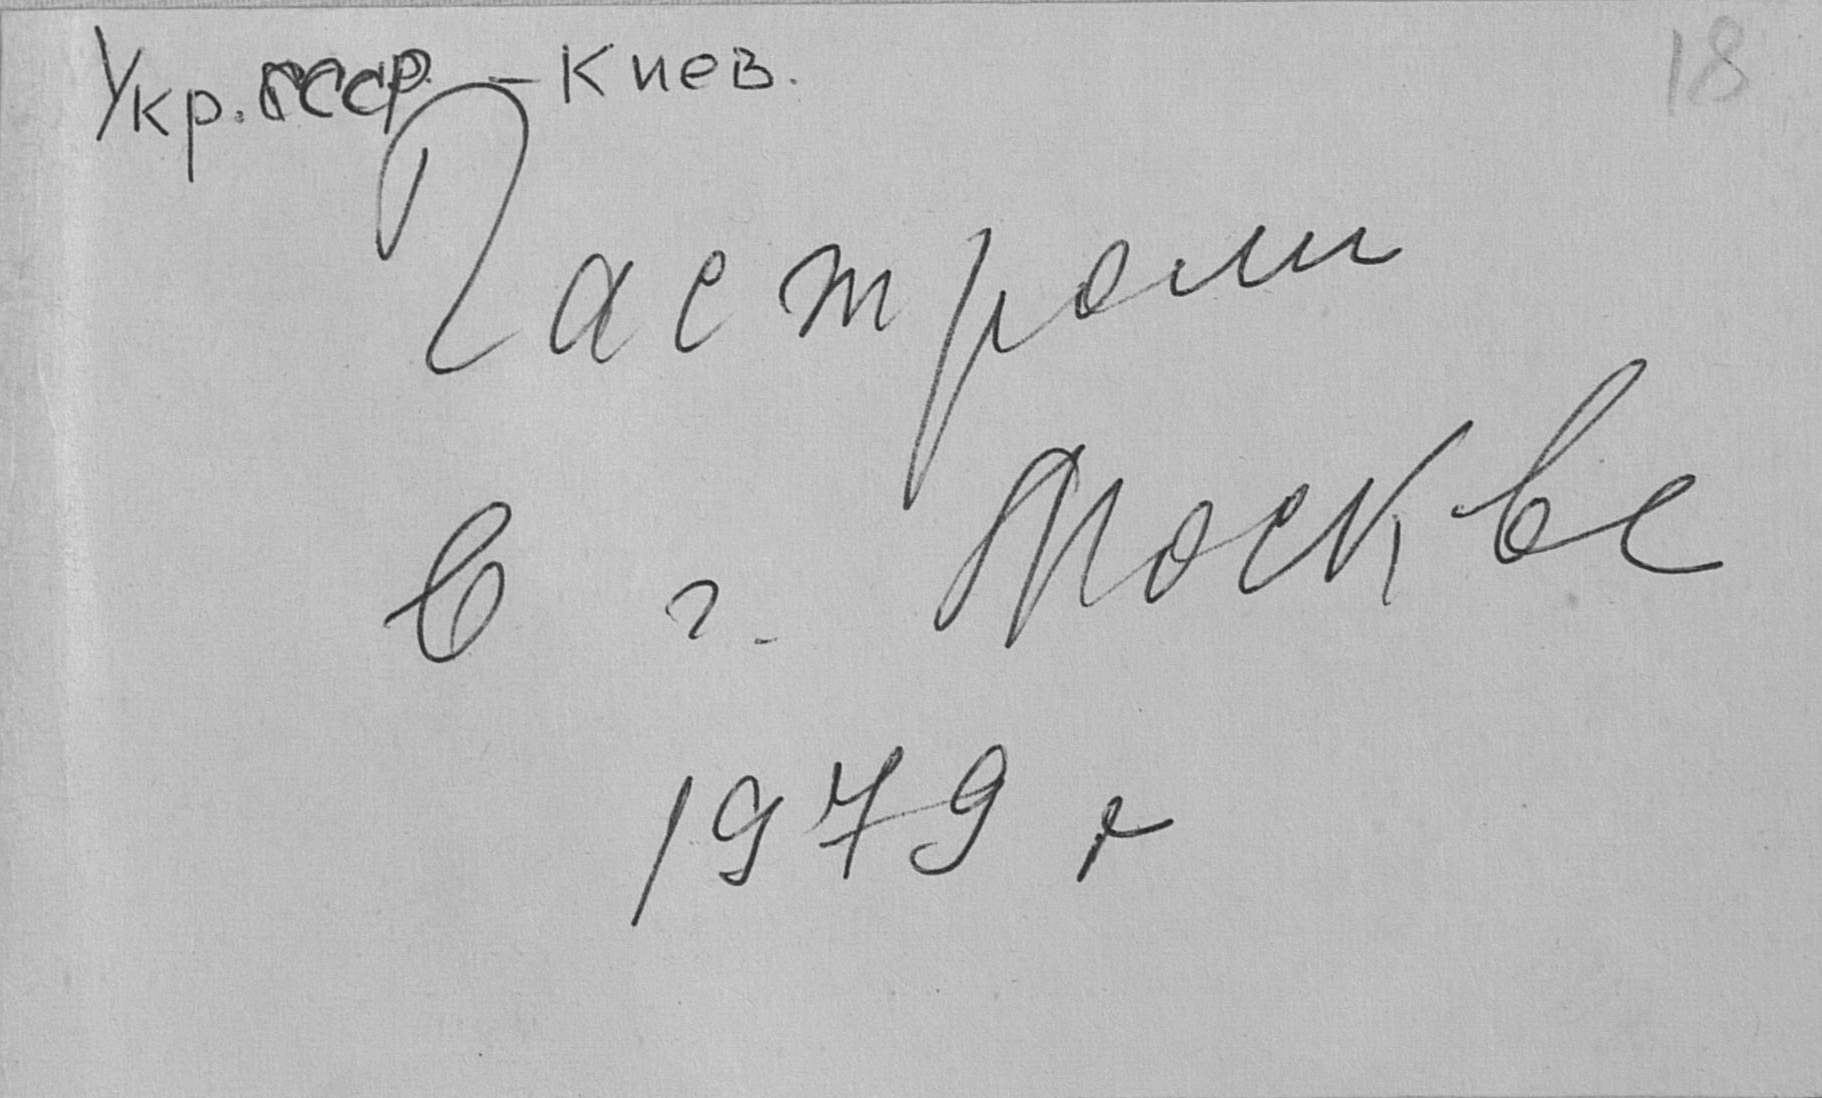 Укр. ССР - Киев.
18
Гастроли
в г. Москве
1979 г